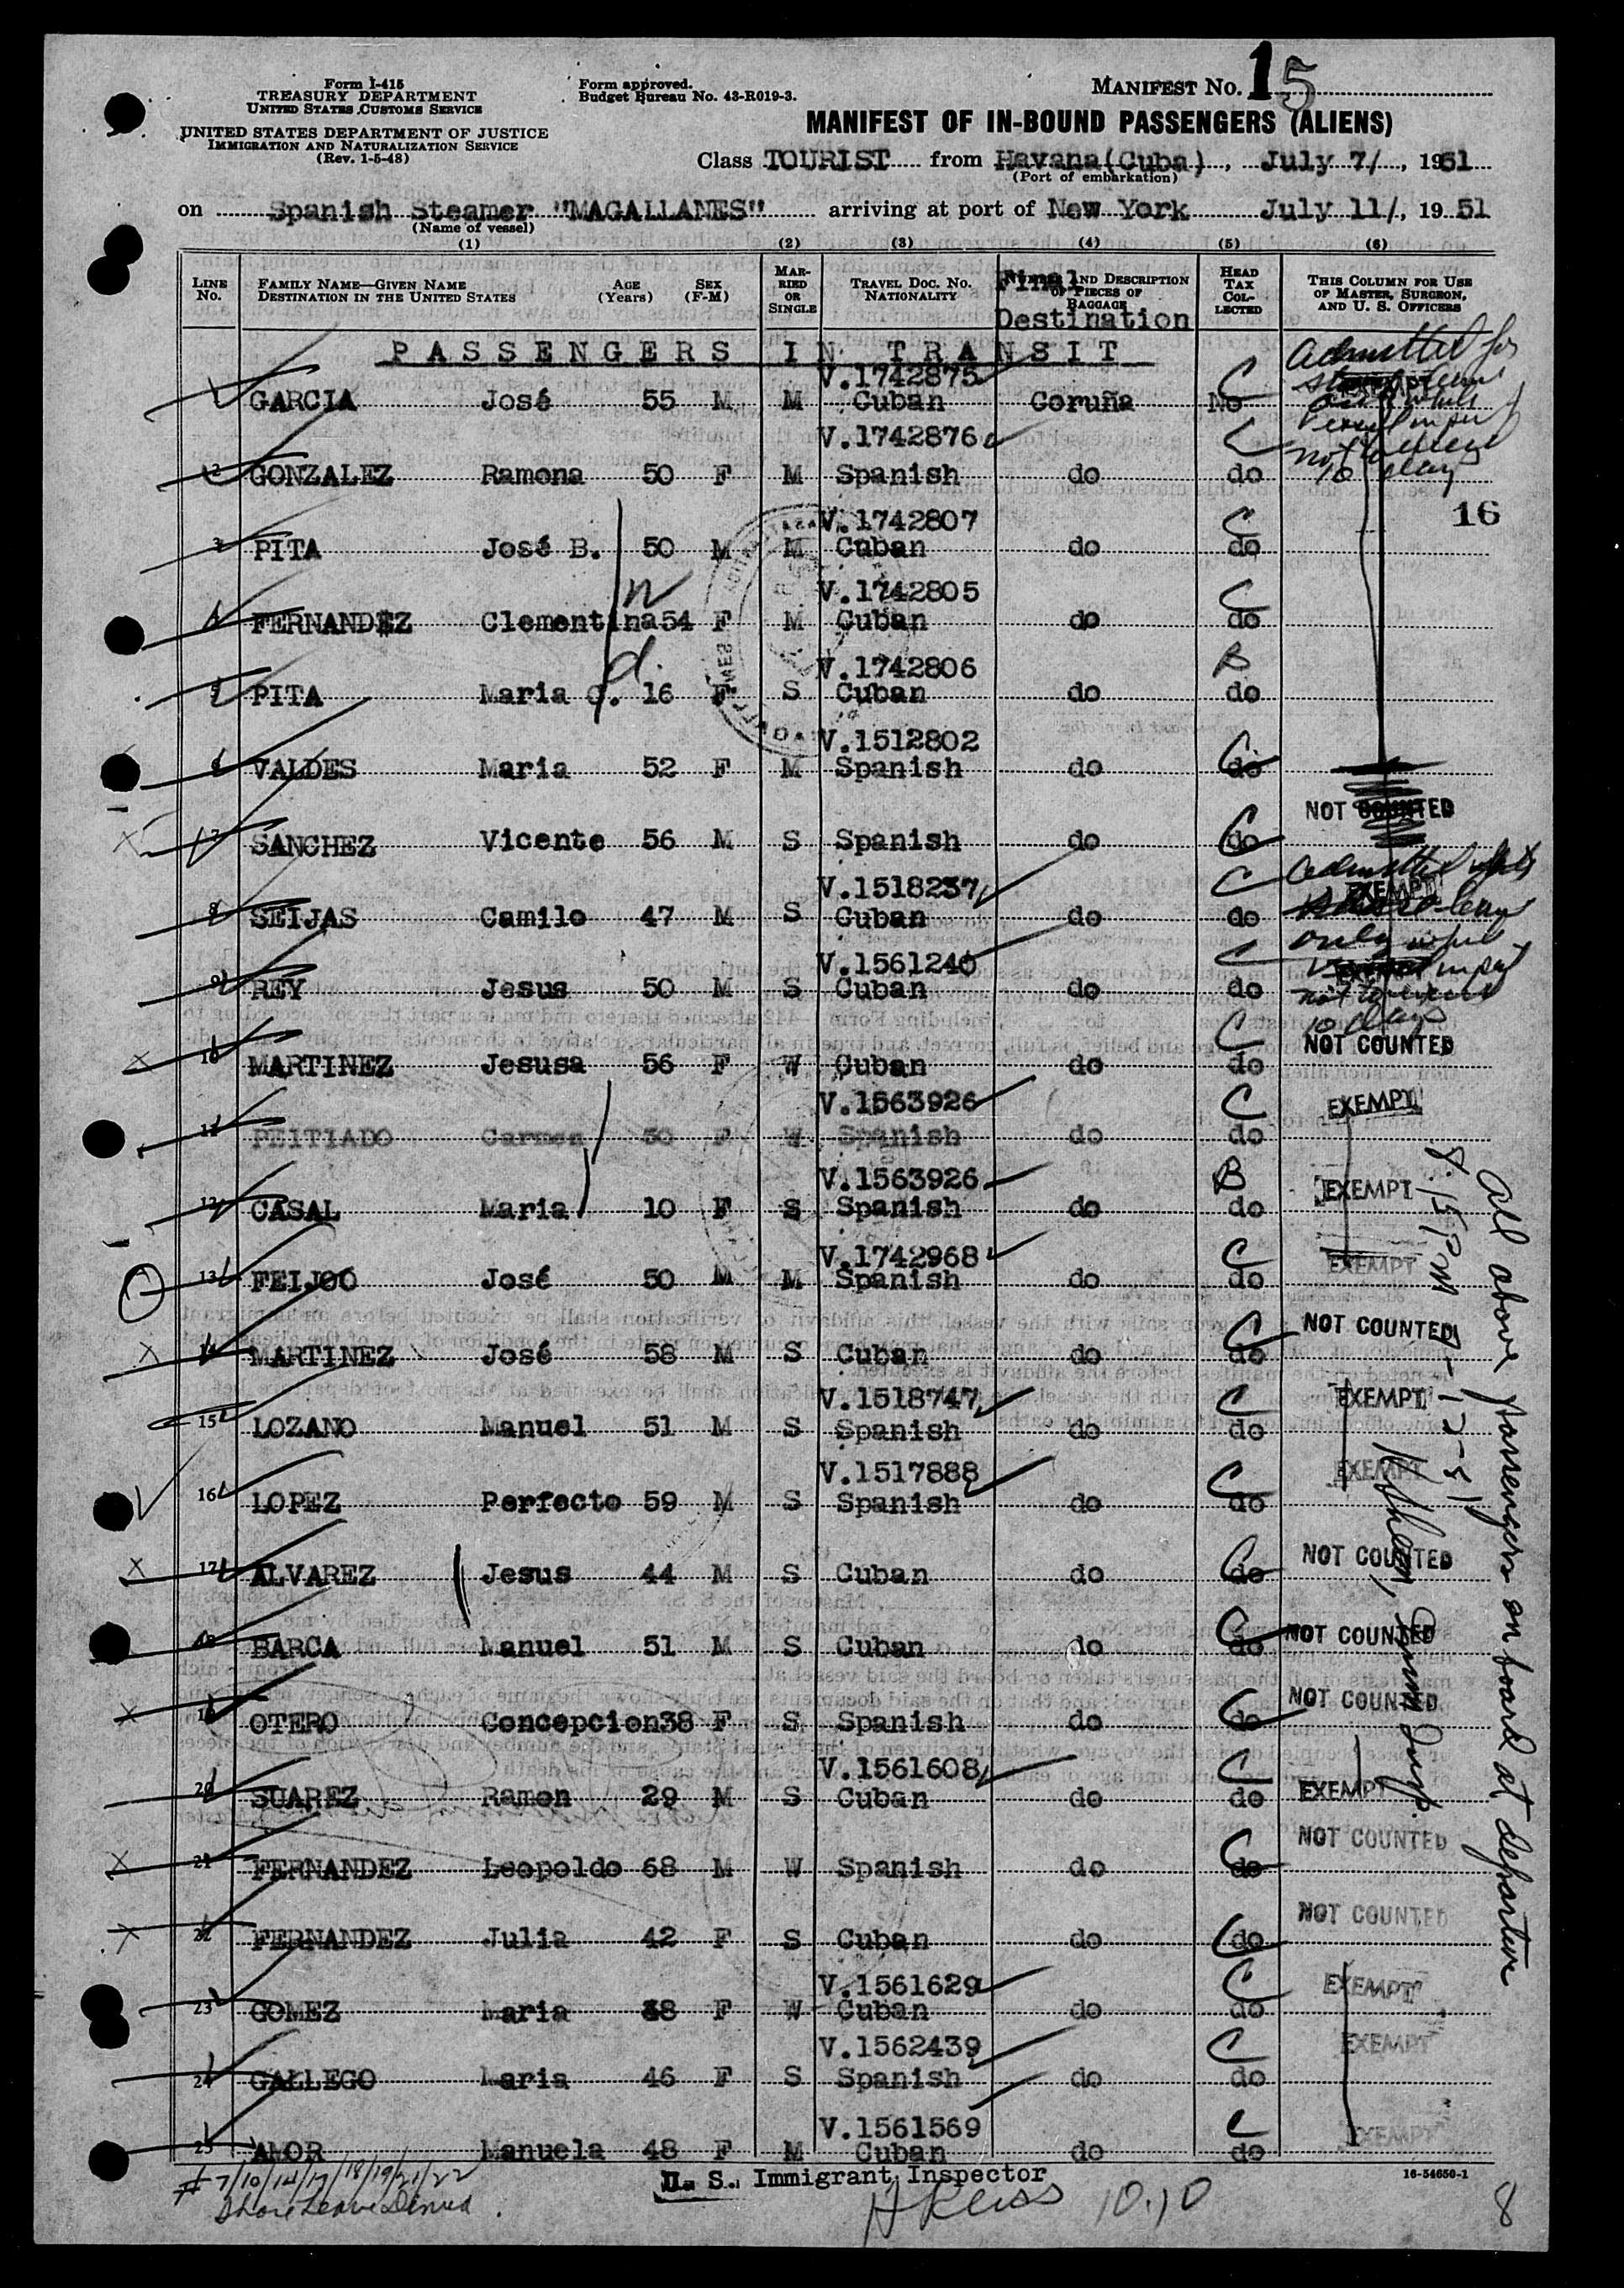 Form I-415
TREASURY DEPARTMENT
UNITED STATES CUSTOMS SERVICE
UNITED STATES DEPARTMENT OF JUSTICE
IMMIGRATION AND NATURALIZATION SERVICE
(Rev. 1-5-48)
Form approved.
Budget Bureau No. 43-R019-3.
MANIFEST No. 15
MANIFEST OF IN-BOUND PASSENGERS (ALIENS)
Class TOURIST from Havana(Cuba), July 7/, 1951
(Port of embarkation)
on Spanish Steamer "MAGALLANES" arriving at port of New York July 11/, 1951
(Name of vessel)
(1) (2) (3) (4) (5) (6)
LINE No. FAMILY NAME—GIVEN NAME DESTINATION IN THE UNITED STATES AGE (Years) SEX (F-M) MARRIED OR SINGLE TRAVEL DOC. No. NATIONALITY AND DESCRIPTION OF PIECES OF BAGGAGE HEAD TAX COLLECTED THIS COLUMN FOR USE OF MASTER, SURGEON, AND U. S. OFFICERS
Final Destination
PASSENGERS IN TRANSIT
V.1742875 C
1 GARCIA José 55 M M Cuban Coruña No
Admitted for
V.1742876 C
2 GONZALEZ Ramona 50 F M Spanish do do
not to exceed
10 days
16
V.1742807 C
3 PITA José B. 50 M M Cuban do do
V.1742805 C
4 FERNANDEZ Clementina 54 F M Cuban do do
V.1742806 B
5 PITA Maria C. 16 F S Cuban do do
V.1512802 C
6 VALDES Maria 52 F M Spanish do do
NOT COUNTED
X 7 SANCHEZ Vicente 56 M S Spanish do C do
V.1518237 C EXEMPT
8 SEIJAS Camilo 47 M S Cuban do do
only while
V.1561240 C
9 REY Jesus 50 M S Cuban do do
not to exceed
10 days
C NOT COUNTED
X 10 MARTINEZ Jesusa 56 F W Cuban do do
V.1563926 C EXEMPT
11 PEITIADO Carmen 50 F W Spanish do do
V.1563926 B EXEMPT
12 CASAL Maria 10 F S Spanish do do
V.1742968 C EXEMPT
13 FEIJOO José 50 M M Spanish do do
C NOT COUNTED
X 14 MARTINEZ José 58 M S Cuban do do
V.1518747 C EXEMPT
15 LOZANO Manuel 51 M S Spanish do do
V.1517888 C EXEMPT
16 LOPEZ Perfecto 59 M S Spanish do do
NOT COUNTED
X 17 ALVAREZ Jesus 44 M S Cuban do C do
NOT COUNTED
18 BARCA Manuel 51 M S Cuban do C do
NOT COUNTED
X 19 OTERO Concepcion 38 F S Spanish do C do
V.1561608 C EXEMPT
20 SUAREZ Ramon 29 M S Cuban do do
NOT COUNTED
X 21 FERNANDEZ Leopoldo 68 M W Spanish do C do
NOT COUNTED
X 22 FERNANDEZ Julia 42 F S Cuban do C do
V.1561629 C EXEMPT
23 GOMEZ Maria 38 F W Cuban do do
V.1562439 C EXEMPT
24 GALLEGO Maria 46 F S Spanish do do
V.1561569 C EXEMPT
25 AMOR Manuela 48 F M Cuban do do
All above passengers on board at departure
8:15 PM 7-12-51
# 7/10/14/17/18/19/21/22
Shore Leave Denied.
U. S. Immigrant Inspector
10.10
16-54650-1
8